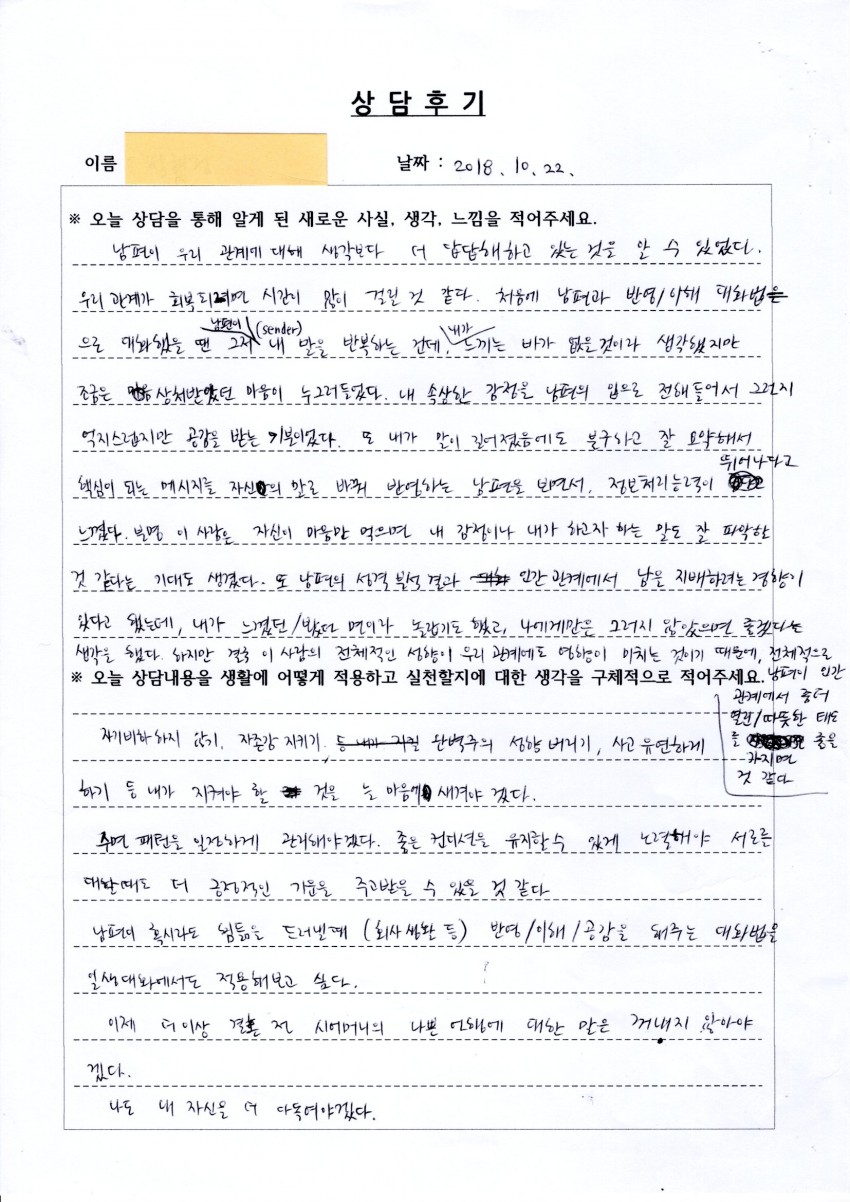 상 담 후 기
이름
날짜 : 2018. 10. 22.
※ 오늘 상담을 통해 알게 된 새로운 사실, 생각, 느낌을 적어주세요.
남편이 우리 관계에 대해 생각보다 더 답답해하고 있는 것을 알 수 있었다.
우리 관계가 회복되려면 시간이 많이 걸릴 것 같다. 처음에 남편과 반영/이해 대화법
으로 대화했을 땐 남편이 그저 (sender) 내 말을 반복하는 건데, 내가 느끼는 바가 없을 것이라 생각했지만
조금은 상처받았던 마음이 누그러들었다. 내 속상한 감정을 남편의 입으로 전해들어서 그런지
억지스럽지만 공감을 받는 기분이었다. 또 내가 말이 길어졌음에도 불구하고 잘 요약해서
핵심이 되는 메시지를 자신의 말로 바꿔 반영하는 남편을 보면서, 정보처리능력이 뛰어나다고
느꼈다. 분명 이 사람은 자신이 마음만 먹으면 내 감정이나 내가 하고자 하는 말도 잘 파악할
것 같다는 기대도 생겼다. 또 남편의 성격 분석 결과 인간관계에서 남을 지배하려는 경향이
있다고 했는데, 내가 느꼈던/봤던 면이라 놀랍기도 했고, 나에게만은 그러지 않았으면 좋겠다는
생각을 했다. 하지만 결국 이 사람의 전체적인 성향이 우리 관계에도 영향이 미치는 것이기 때문에, 전체적으로
남편이 인간
관계에서 좀더
열린/따뜻한 태도
를 가지면 좋을
것 같다
※ 오늘 상담내용을 생활에 어떻게 적용하고 실천할지에 대한 생각을 구체적으로 적어주세요.
자기비하 하지 않기, 자존감 지키기, 완벽주의 성향 버리기, 사고 유연하게
하기 등 내가 지켜야 할 것을 늘 마음에 새겨야 겠다.
수면 패턴을 일정하게 관리해야겠다. 좋은 컨디션을 유지할 수 있게 노력해야 서로를
대할때도 더 긍정적인 기운을 주고받을 수 있을 것 같다
남편이 혹시라도 힘듦을 드러낼 때 (회사 생활 등) 반영/이해/공감을 해주는 대화법을
일상대화에서도 적용해보고 싶다.
이제 더이상 결혼 전 시어머니의 나쁜 언행에 대한 말은 꺼내지 않아야
겠다.
나도 내 자신을 더 다독여야겠다.